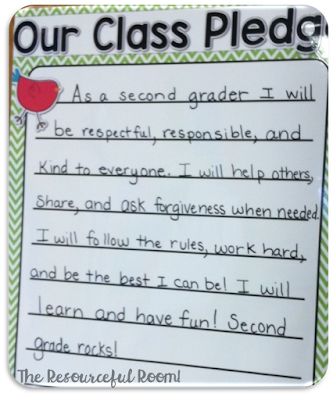 Our Class Pledg
As a second grader I will
be respectful, responsible, and
kind to everyone. I will help others,
share, and ask forgiveness when needed.
I will follow the rules, work hard,
and be the best I can be! I will
learn and have fun! Second
grade rocks!
The Resourceful Room!